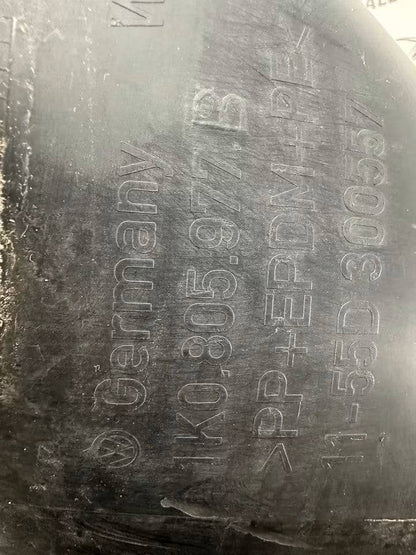 Germany
1K0.805.977.B
>PP+EPDM+PE<
11-55D30057